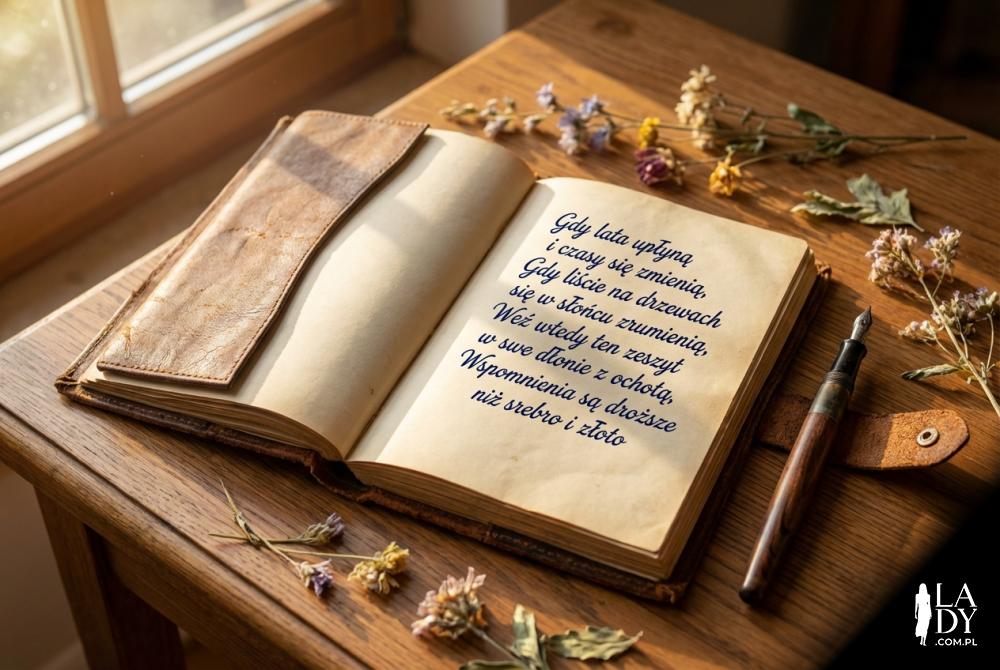 Gdy lata upłyną
i czasy się zmienią,
Gdy liście na drzewach
się w słońcu zrumienią,
Weź wtedy ten zeszyt
w swe dłonie z ochotą,
Wspomnienia są droższe
niż srebro i złoto
LA
DY
.COM.PL